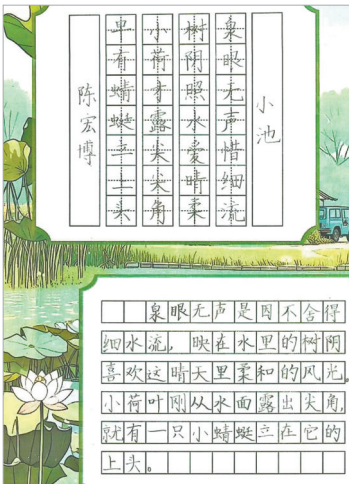 小池
泉眼无声惜细流
树阴照水爱晴柔
小荷才露尖尖角
早有蜻蜓立上头
陈宏博
泉眼无声是因不舍得
细水流，映在水里的树阴
喜欢这晴天里柔和的风光。
小荷叶刚从水面露出尖角，
就有一只小蜻蜓立在它的
上头。